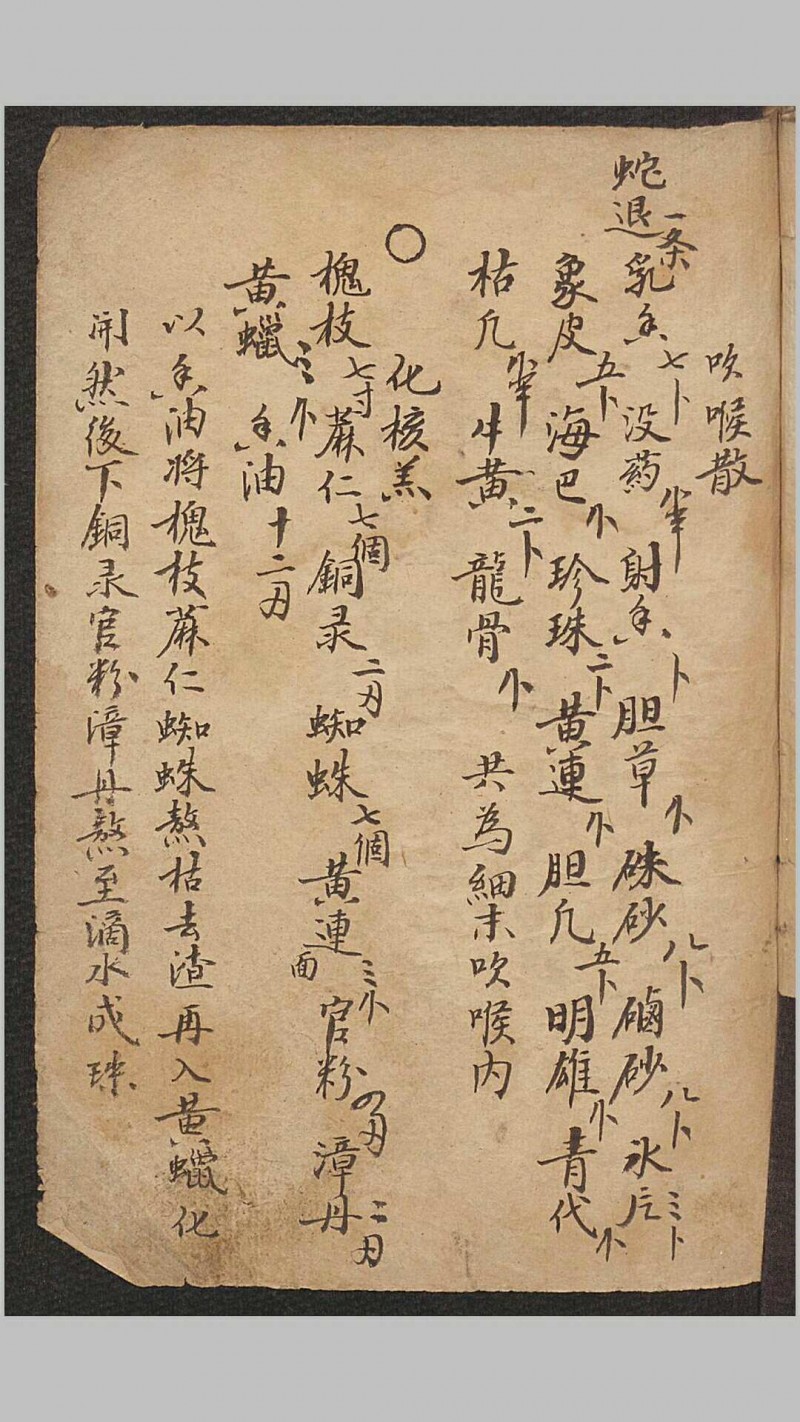 吹喉散
蛇退一条 乳香七卜 没药半 射香卜 胆草 硃砂八卜 磠砂八卜 氷片三卜
象皮五卜 海巴 珍珠二卜 黄連 胆凡五卜 明雄 青代
枯凡半 牛黄二卜 龍骨 共為細末吹喉内
○
化核羔
槐枝七寸 蔴仁七個 銅录二刃 蜘蛛七個 黄連面三 官粉四刃 漳丹二刃
黄蠟三 香油十二刃
以香油将槐枝蔴仁蜘蛛熬枯去渣再入黄蠟化
開然後下銅录官粉漳丹熬至滴水成珠